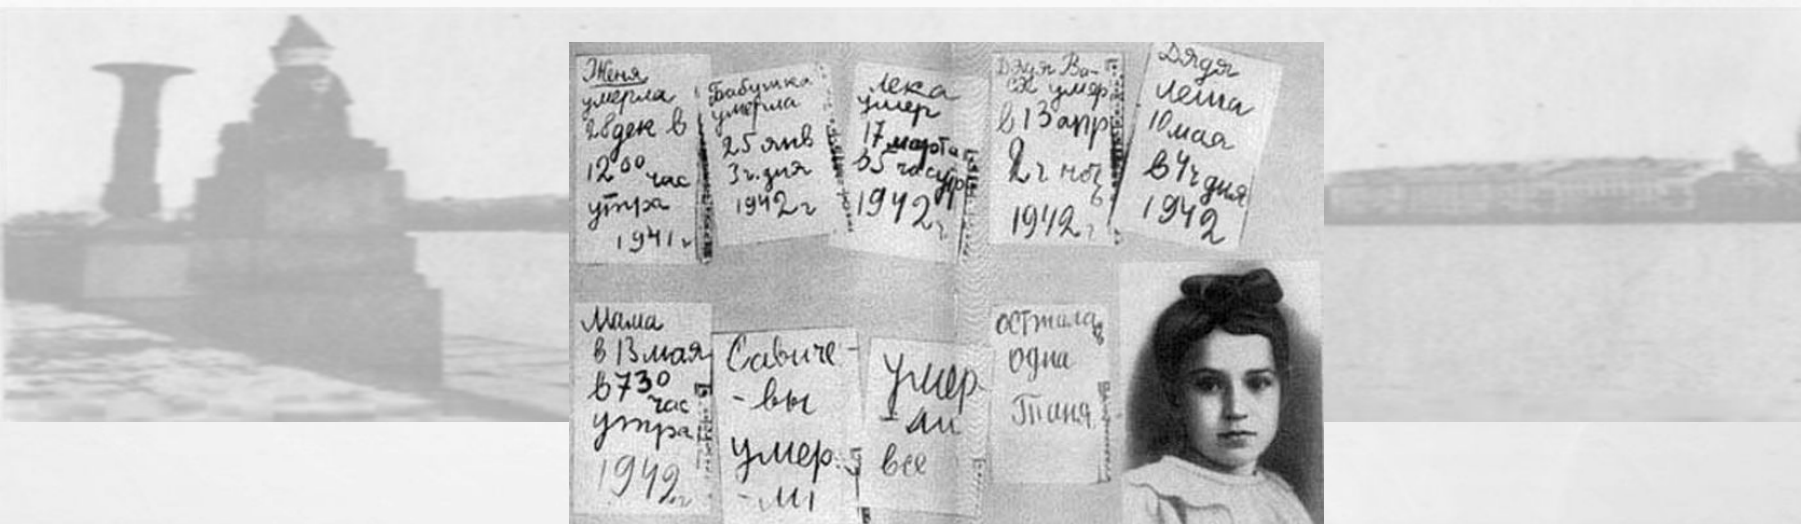 Женя
умерла
28 дек в
12 00 час
утра
1941 г
Бабушка
умерла
25 янв
3 ч. дня
1942 г
Лека
умер
17 марта
в 5 час утр
1942 г
Дядя Ва-
ся умер
в 13 апр
2 ч ноч
1942 г
Дядя
Леша
10 мая
в 4 ч дня
1942
Мама
в 13 мая
в 7 30
час
утра
1942 г
Савиче-
-вы
умер-
-ли
Умер
-ли
все
Осталась
одна
Таня